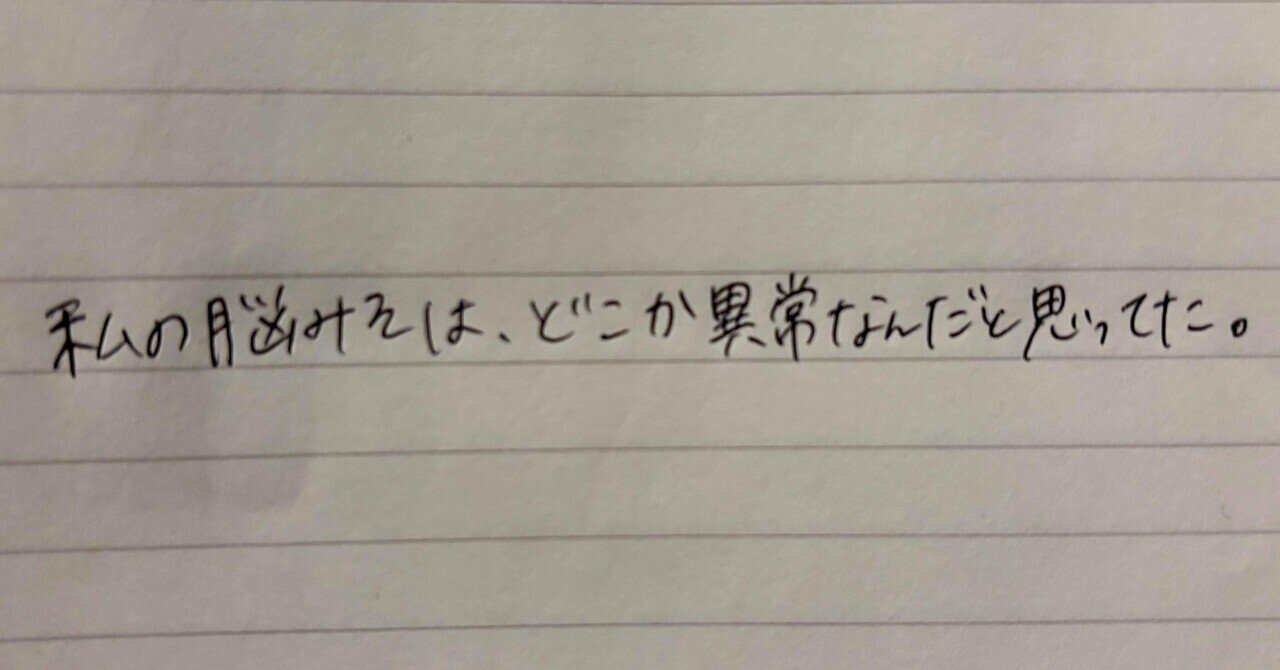 私の脳みそは、どこか異常なんだと思ってた。